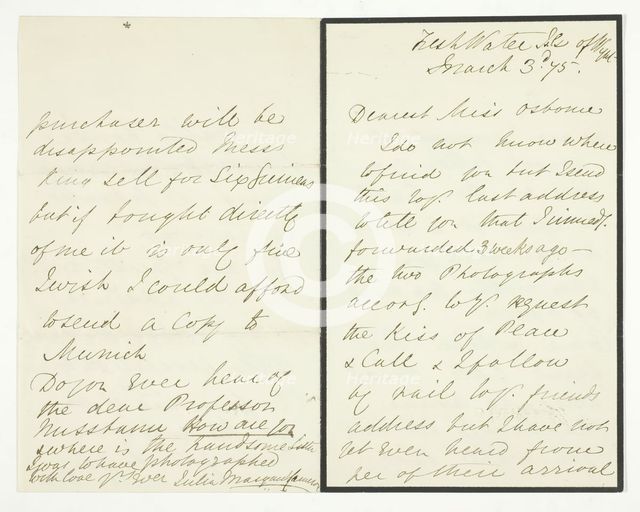 Fresh Water Isle of Wight
March 3d 75.
Dearest Miss Osborne
I do not know where
to find you but I send
this to yr. last address
to tell you that I immedy.
forwarded 3 weeks ago -
the two Photographs
accordg. to yr. request
the Kiss of Peace
& Call & I follow
by rail to yr. friends
address but I have not
yet Even heard from
her of their arrival
*
purchaser will be
disappointed Messrs
King sell for Six Guineas
but if bought directly
of me it is only five
I wish I could afford
to send a Copy to
Munich
Do you Ever hear of
the dear Professor
Nussbaum How are you
& where is the handsome Sister
I was to have photographed
with love yr. Ever Julia Margaret Cameron
Heritage
Heritage
Heritage
Heritage
C